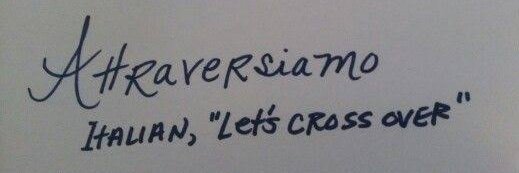 Attraversiamo
ITALIAN, "Let's CROSS OVER"